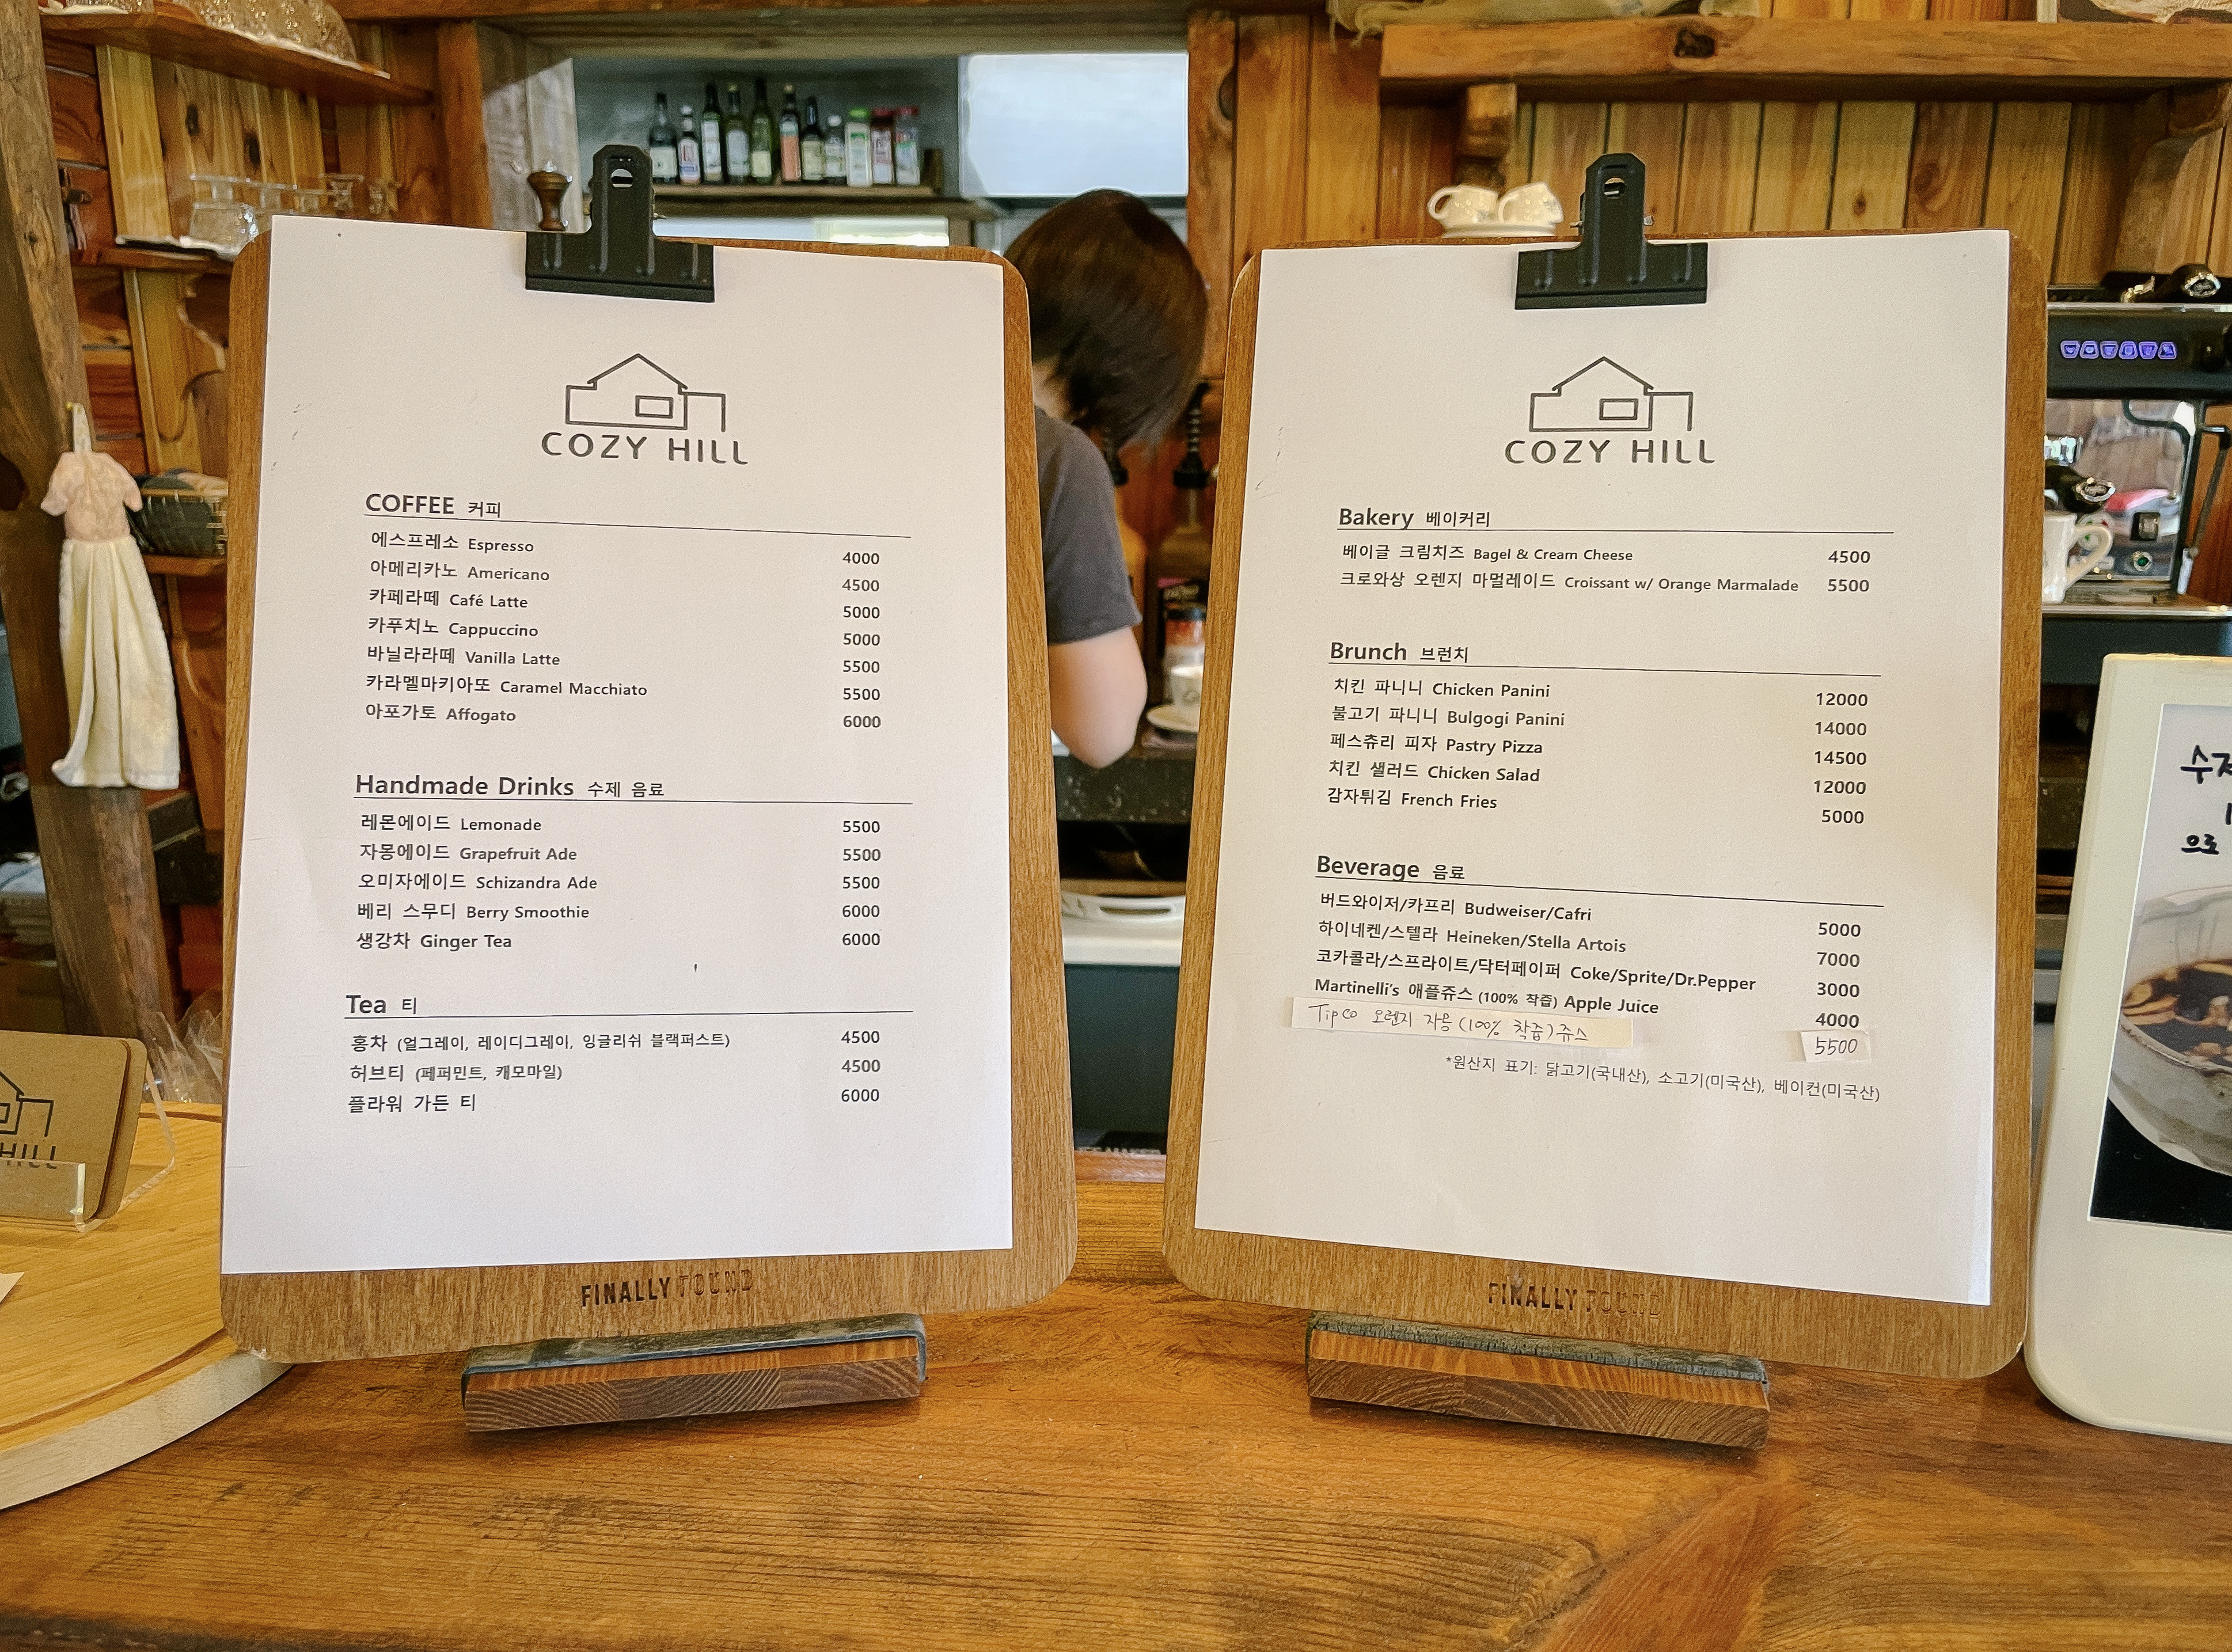 COZY HILL
COFFEE 커피
에스프레소 Espresso 4000
아메리카노 Americano 4500
카페라떼 Café Latte 5000
카푸치노 Cappuccino 5000
바닐라라떼 Vanilla Latte 5500
카라멜마키아또 Caramel Macchiato 5500
아포가토 Affogato 6000
Handmade Drinks 수제 음료
레몬에이드 Lemonade 5500
자몽에이드 Grapefruit Ade 5500
오미자에이드 Schizandra Ade 5500
베리 스무디 Berry Smoothie 6000
생강차 Ginger Tea 6000
Tea 티
홍차 (얼그레이, 레이디그레이, 잉글리쉬 블랙퍼스트) 4500
허브티 (페퍼민트, 캐모마일) 4500
플라워 가든 티 6000
FINALLY FOUND
COZY HILL
Bakery 베이커리
베이글 크림치즈 Bagel & Cream Cheese 4500
크로와상 오렌지 마멀레이드 Croissant w/ Orange Marmalade 5500
Brunch 브런치
치킨 파니니 Chicken Panini 12000
불고기 파니니 Bulgogi Panini 14000
페스츄리 피자 Pastry Pizza 14500
치킨 샐러드 Chicken Salad 12000
감자튀김 French Fries 5000
Beverage 음료
버드와이저/카프리 Budweiser/Cafri 5000
하이네켄/스텔라 Heineken/Stella Artois 7000
코카콜라/스프라이트/닥터페이퍼 Coke/Sprite/Dr.Pepper 3000
Martinelli's 애플쥬스 (100% 착즙) Apple Juice 4000
Tipco 오렌지 자몽 (100% 착즙) 쥬스 5500
*원산지 표기: 닭고기(국내산), 소고기(미국산), 베이컨(미국산)
FINALLY FOUND
HILL
수제
으로